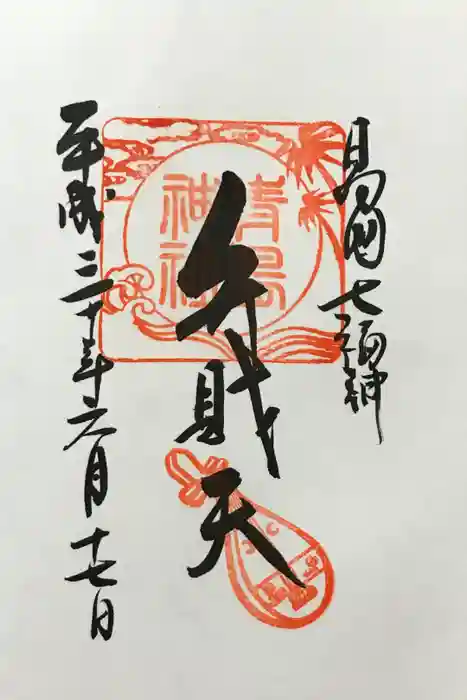 日向七福神
青島
神社
弁財天
平成三十年六月十七日